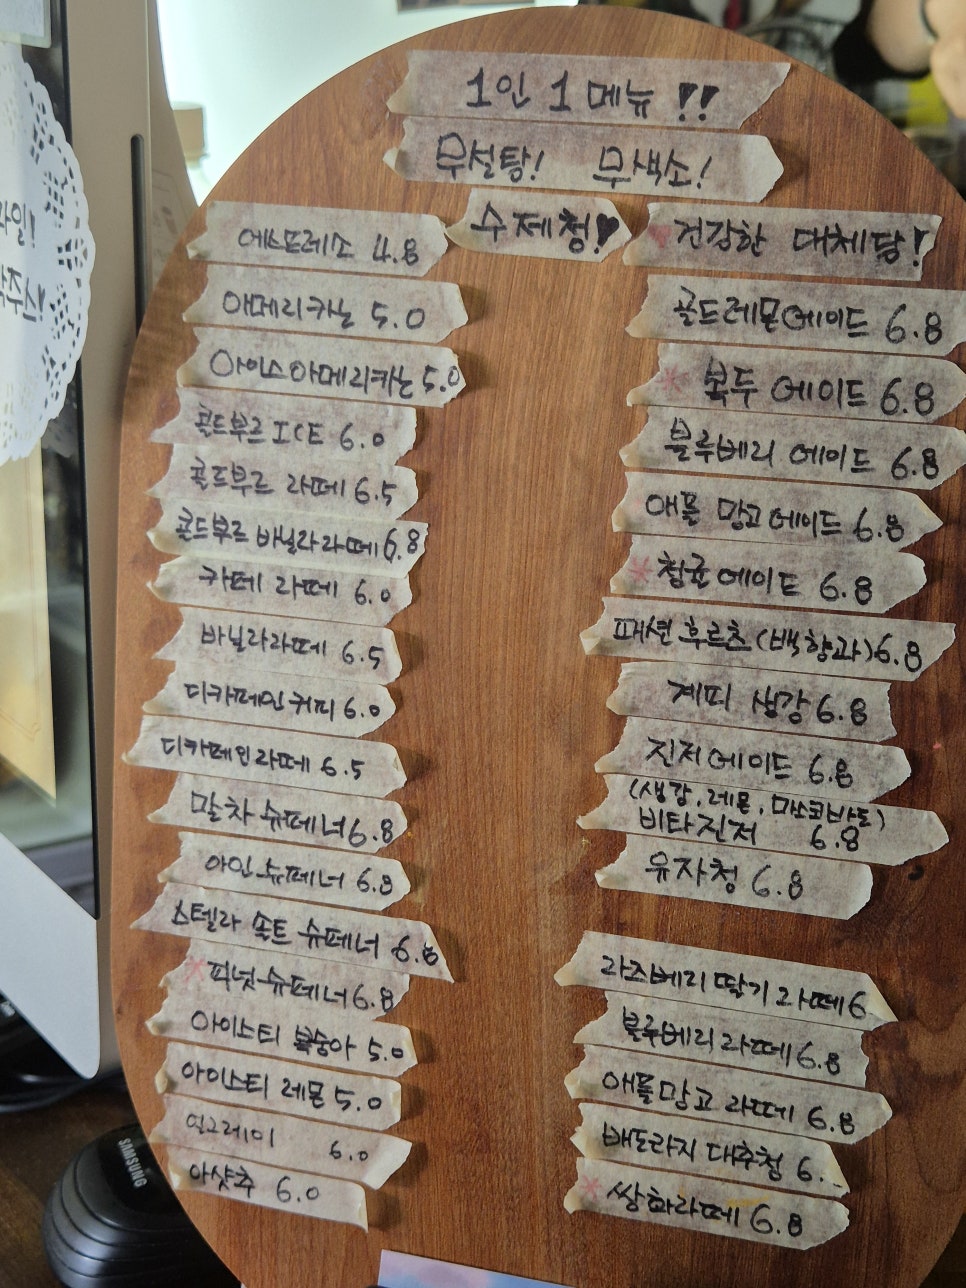 1인 1 메뉴 !!
무설탕! 무색소!
수제청!
건강한 대체당!
에스프레소 4.8
아메리카노 5.0
아이스아메리카노 5.0
콜드부르 ICE 6.0
콜드부르 라떼 6.5
콜드부르 바닐라라떼 6.8
카페 라떼 6.0
바닐라라떼 6.5
디카페인커피 6.0
디카페인라떼 6.5
말차 슈페너 6.8
아인슈페너 6.8
스텔라 솔트 슈페너 6.8
*피넛슈페너 6.8
아이스티 복숭아 5.0
아이스티 레몬 5.0
얼그레이 6.0
아샷추 6.0
골드레몬에이드 6.8
* 복두 에이드 6.8
블루베리 에이드 6.8
애플 망고에이드 6.8
*청귤에이드 6.8
패션후르츠(백향과) 6.8
계피 생강 6.8
진저에이드 6.8
(생강, 레몬, 마스코바도)
비타진저 6.8
유자청 6.8
라즈베리딸기라떼 6
블루베리라떼 6.8
애플망고 라떼 6.8
배도라지 대추청 6.
*쌍화라떼 6.8
SAMSUNG